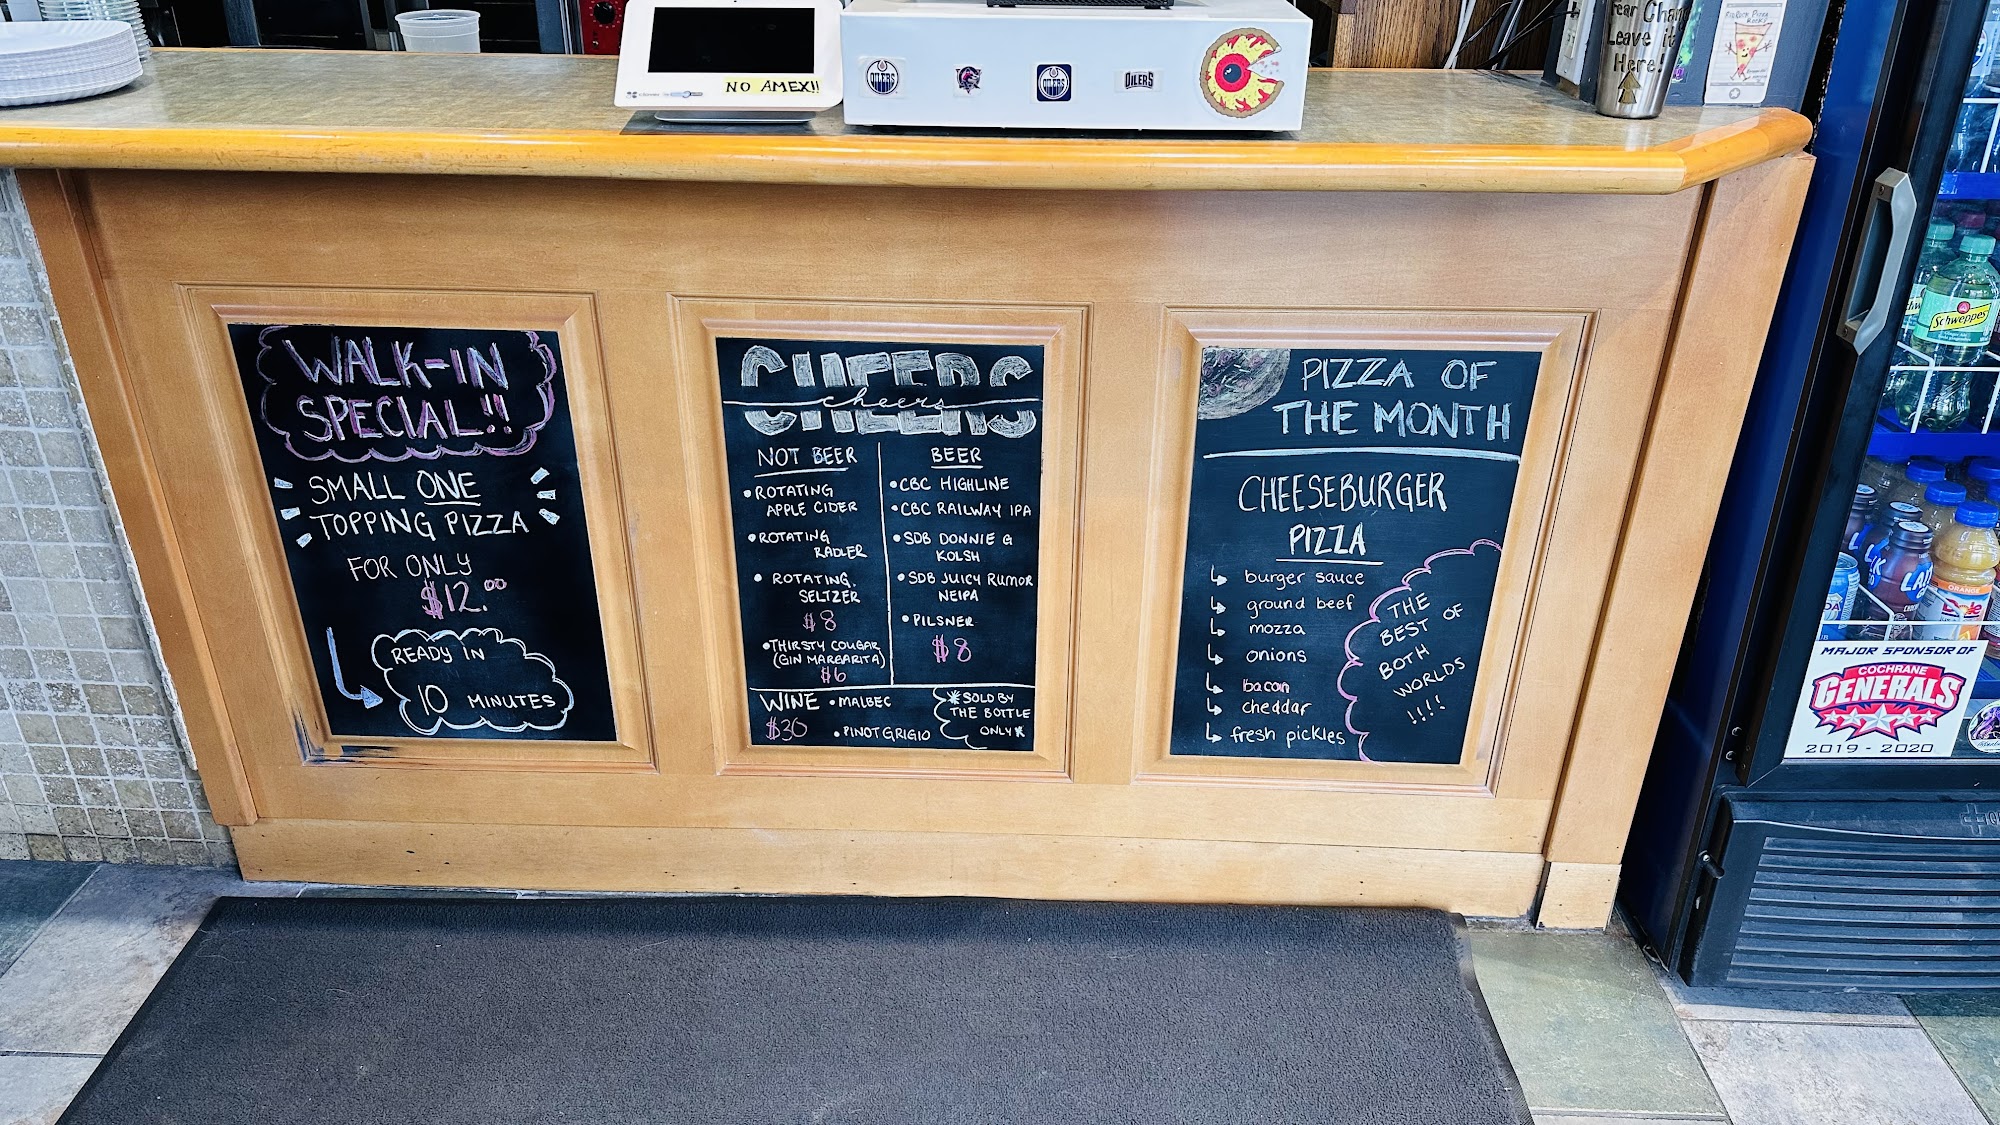 NO AMEX!!
OILERS
OILERS
OILERS
Fear Change
Leave it
Here!
WALK-IN
SPECIAL!!
SMALL ONE
TOPPING PIZZA
FOR ONLY
$12.00
READY IN
10 MINUTES
CHEERS
cheers
NOT BEER
• ROTATING
APPLE CIDER
• ROTATING
RADLER
• ROTATING.
SELTZER
$8
• THIRSTY COUGAR
(GIN MARGARITA)
$6
BEER
• CBC HIGHLINE
• CBC RAILWAY IPA
• SDB DONNIE G
KOLSH
• SDB JUICY RUMOR
NEIPA
• PILSNER
$8
WINE • MALBEC
$30 • PINOT GRIGIO
* SOLD BY
THE BOTTLE
ONLY *
PIZZA OF
THE MONTH
CHEESEBURGER
PIZZA
burger sauce
ground beef
mozza
onions
bacon
cheddar
fresh pickles
THE
BEST OF
BOTH
WORLDS
!!!!
Schweppes
ORANGE
Dole
MAJOR SPONSOR OF
COCHRANE
GENERALS
2019 - 2020